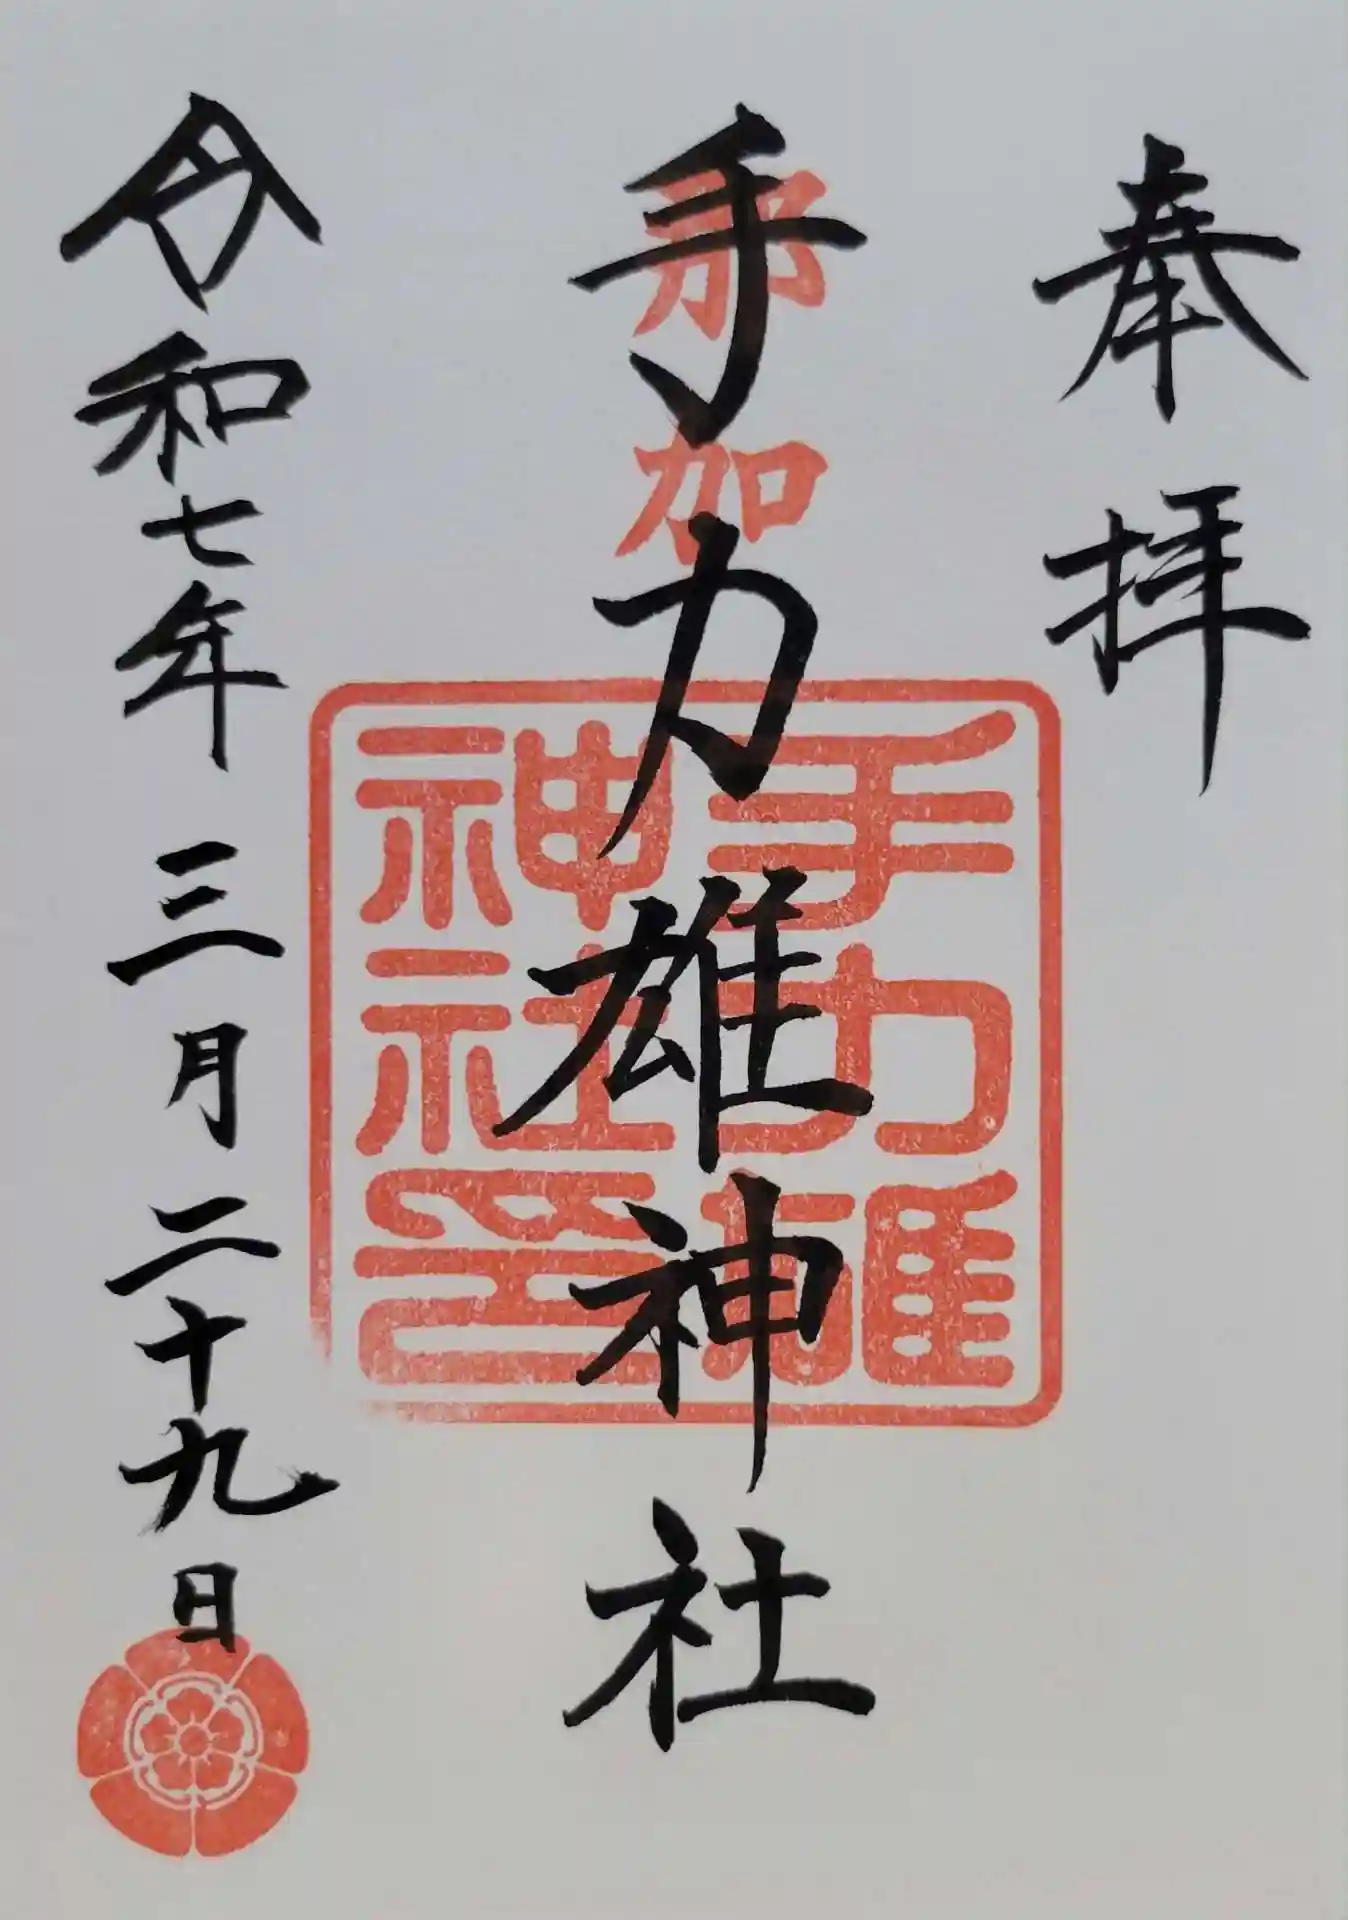 奉拝
那加
手力雄神社
手力雄
神社印
令和七年 三月 二十九日